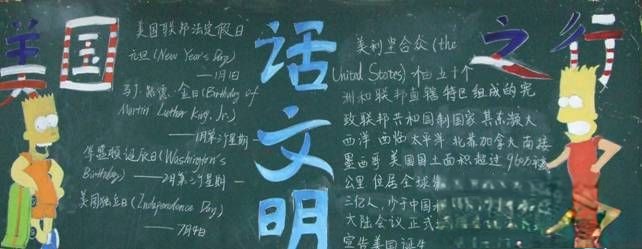 美国
话文明
之行
美国联邦法定假日
元旦(New Year's Day)
——1月1日
马丁·路德·金日(Birthday of
Martin Luther King, Jr.)
——1月第三个星期一
华盛顿诞辰日(Washington's
Birthday)——2月第三个星期一
美国独立日(Independence Day)
——7月4日
美利坚合众(the
United States) 五十个
洲和联邦直辖特区组成的宪
政联邦共和国制国家 其东濒大
西洋 西临太平洋 北靠加拿大 南接
墨西哥 美国国土面积超过962万
公里 位居全球
三亿人,少于中国
大陆会议正式
宣告美国诞生